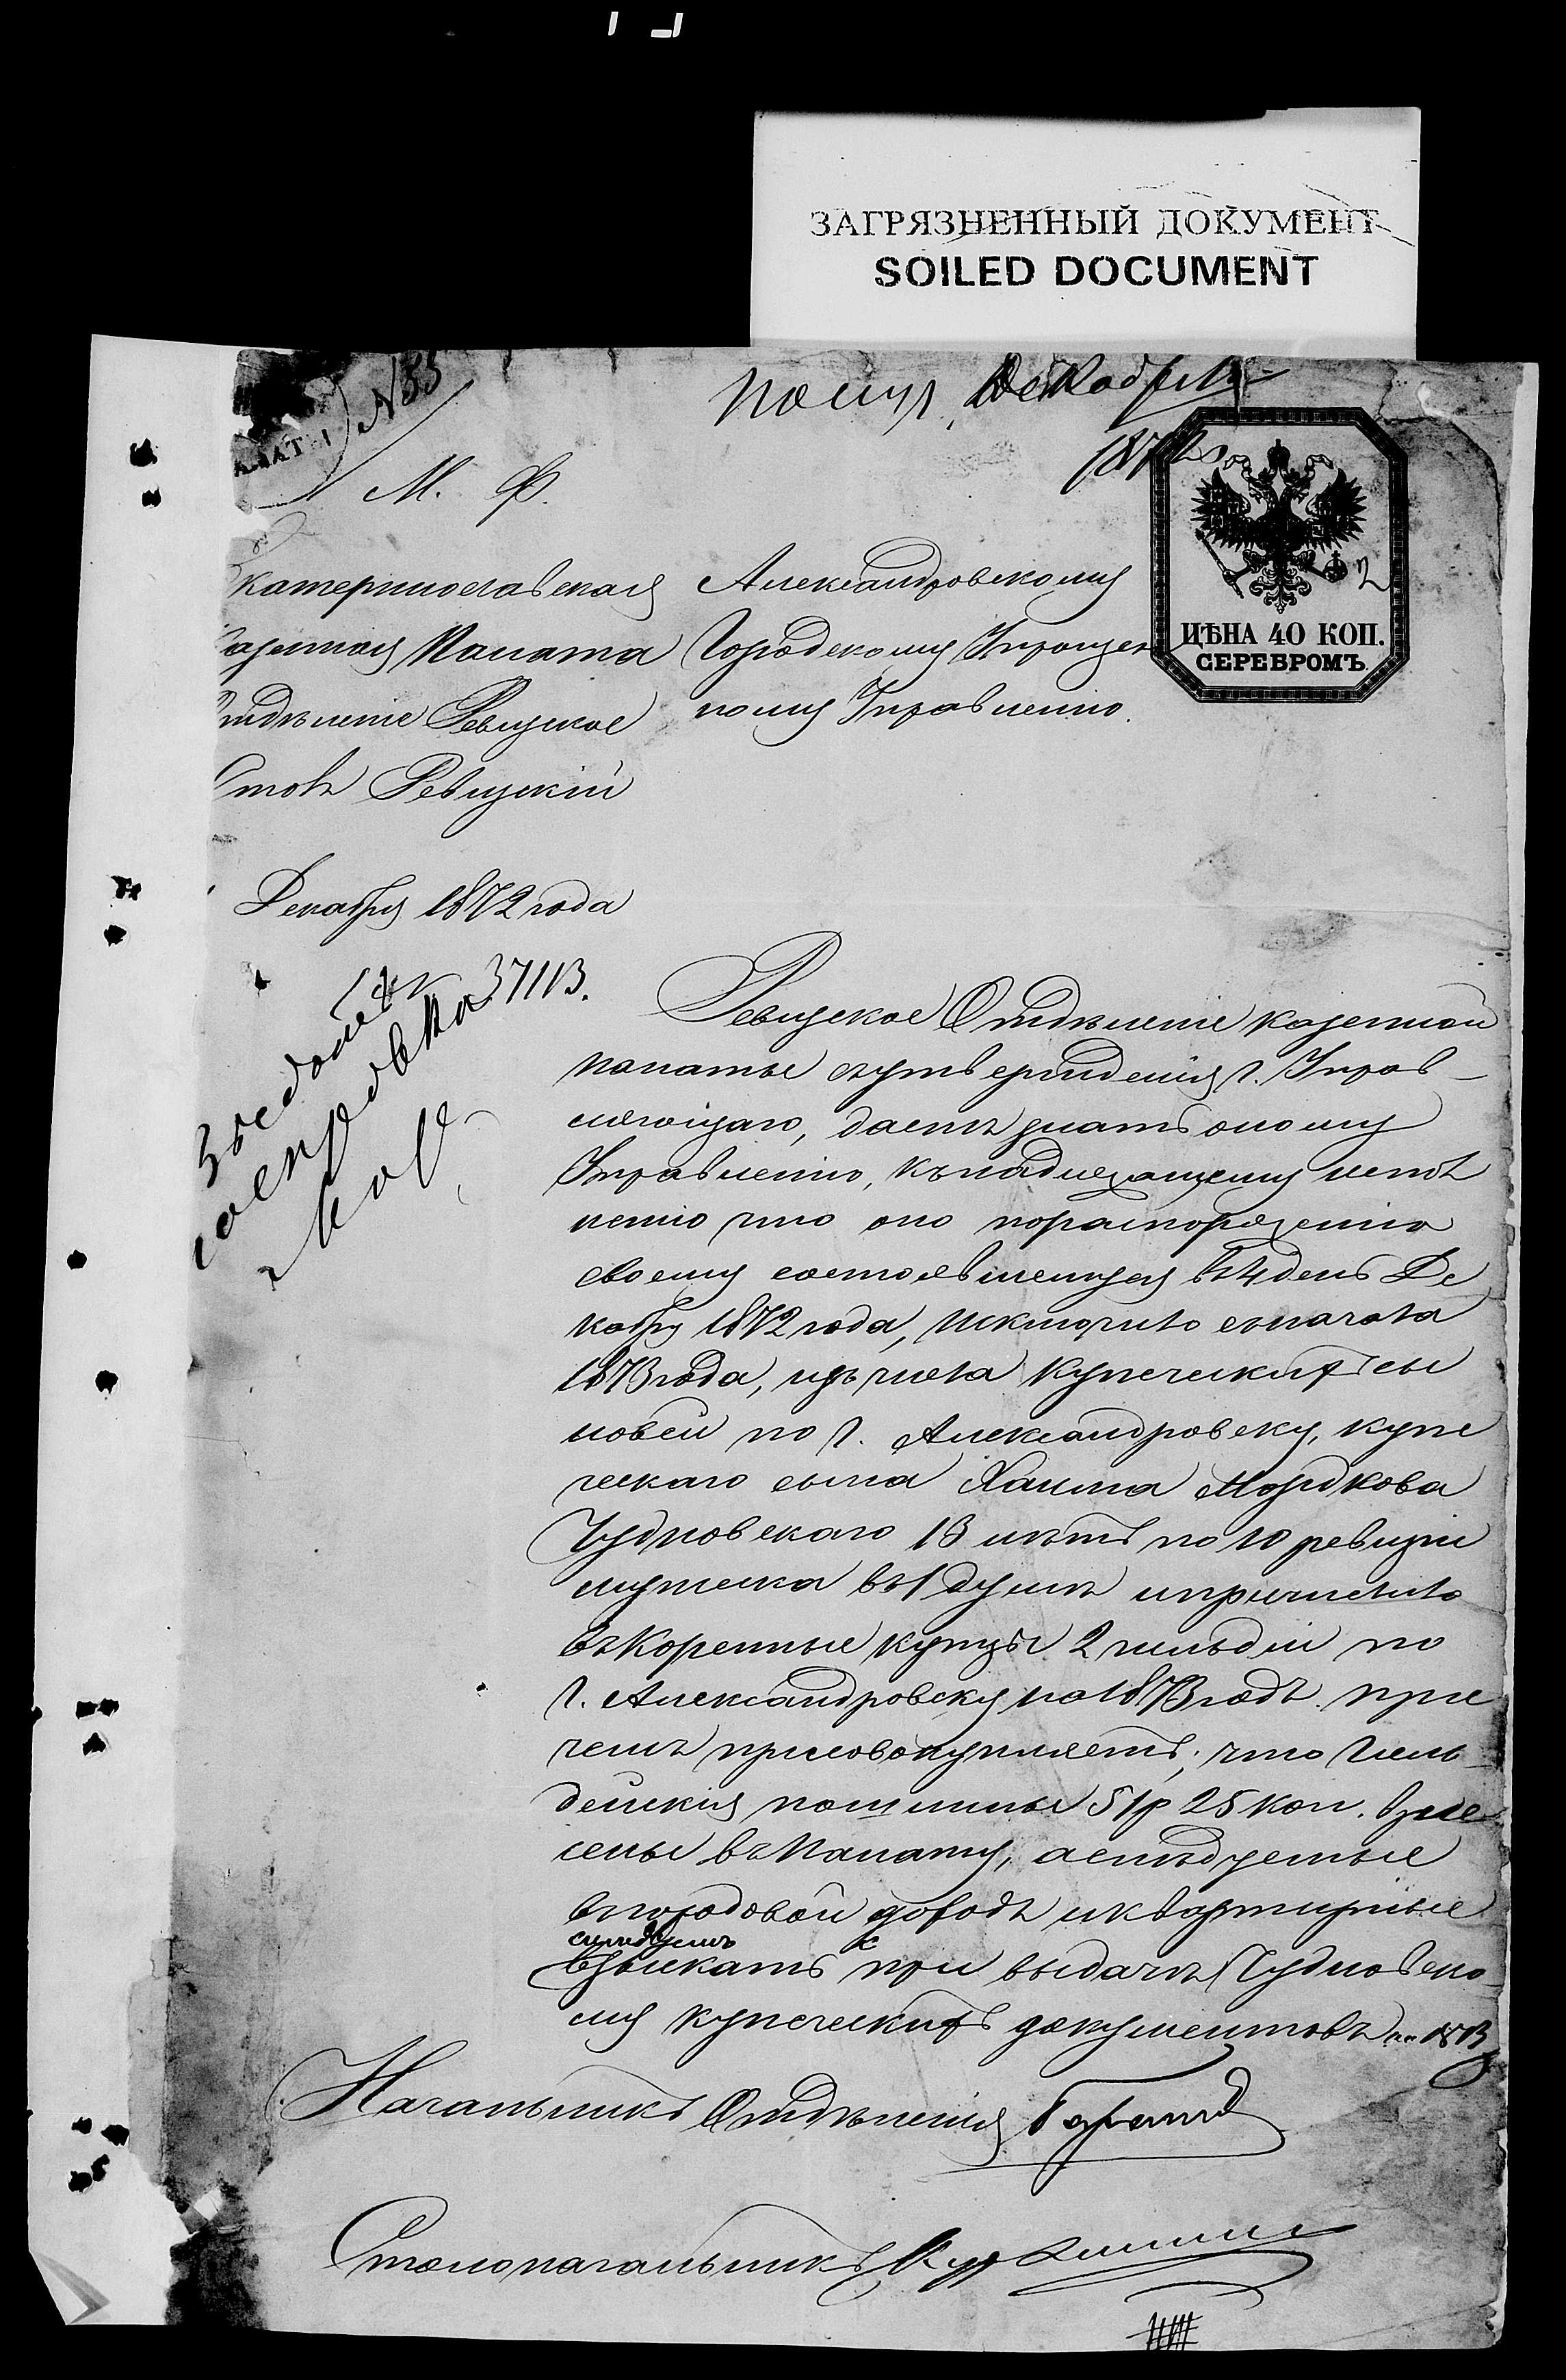 ЗАГРЯЗНЕННЫЙ ДОКУМЕНТ
SOILED DOCUMENT
N 55
Декабря
М. Ф.
1872
2
ЦѢНА 40 КОП.
СЕРЕБРОМЪ
катеринославская
азенная Палата
тдѣленіе Ревизское
Столъ Ревизскій
Декабря 1872 года
37113.
Александровскому
Городскому Упрощен
ному Управленію.
Ревизское Отдѣленіе казенной
палаты съ утвержденія г. Управ-
ляющаго, даетъ знать оному
Управленію, къ надлежащему испол
ненію что оно по распоряженію
своему состоявшемуся въ 4 день Де
кабря 1872 года, исключило съ начала
1873 года, изъ числа купеческихъ сы
новей по г. Александровску, купе
ческаго сына Хаима Мордкова
Чудновскаго 13 лѣтъ по 10 ревизіи
мужеска въ 1 душѣ и причислило
въ коренные купцы 2 гильдіи по
г. Александровску на 1873 годъ при
чемъ присовокупляетъ; что Гиль
дейскія пошлины 51 р 25 коп. взне
сены въ Палату, а слѣдуемыя
въ городовой доходъ и квартирные
слѣдуетъ
взыскать при выдачѣ Чудновско
му купеческихъ документовъ на 1873
Начальникъ Отдѣленія
Столоначальникъ